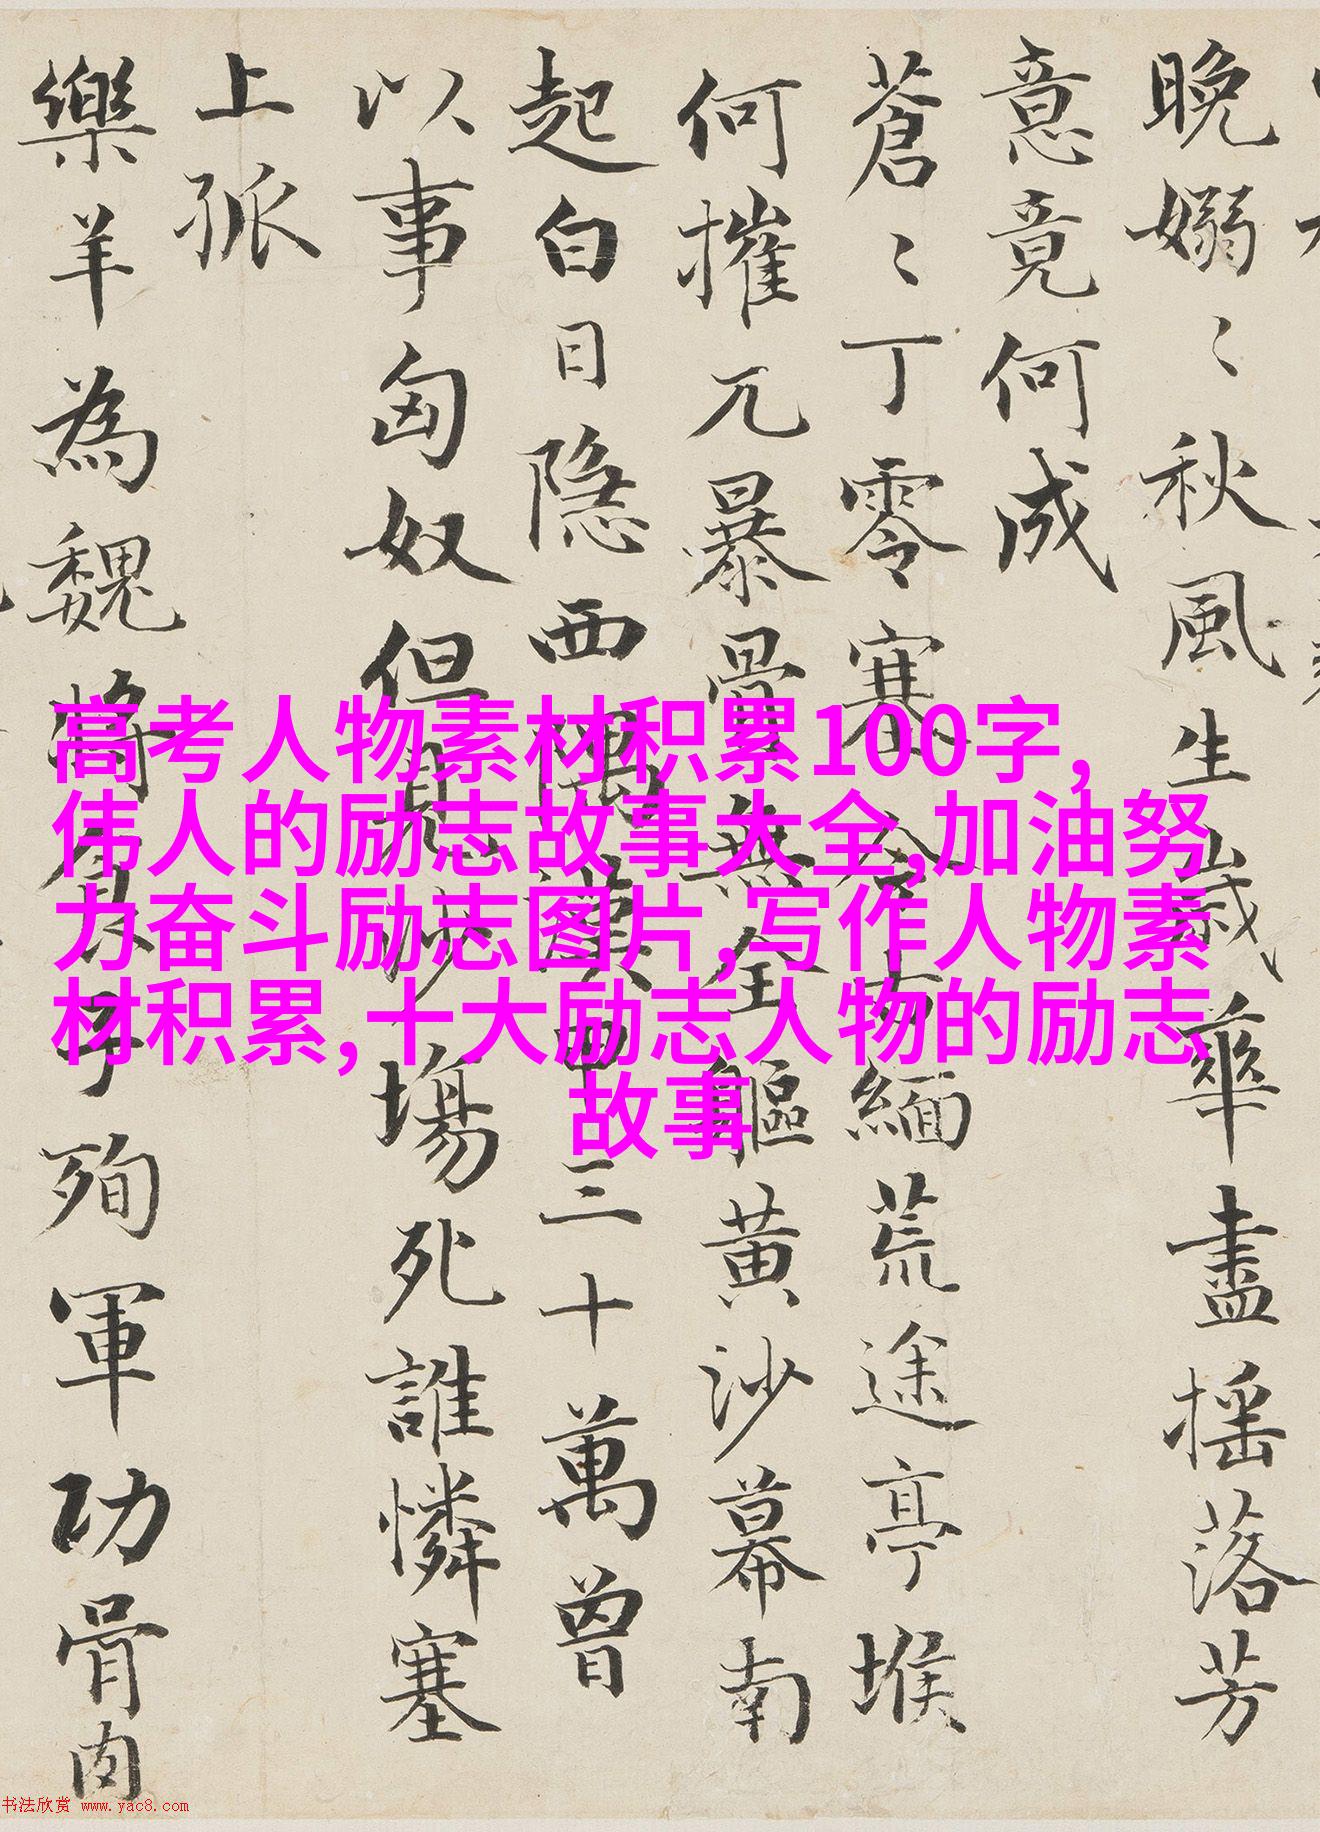 晚嫋〻秋風生歲華盡摇落芳
意竟何成
蒼〻丁零塞今古緬荒途亭堠
何摧兀暴骨無全軀黄沙幕南
起白日隐西隅漢甲三十萬曾
以事匈奴但見沙場死誰憐塞
上孤
樂羊為魏將食子殉軍功骨肉
高考人物素材积累100字,
伟人的励志故事大全,加油努
力奋斗励志图片,写作人物素
材积累,十大励志人物的励志
故事
书法欣赏 www.yac8.com